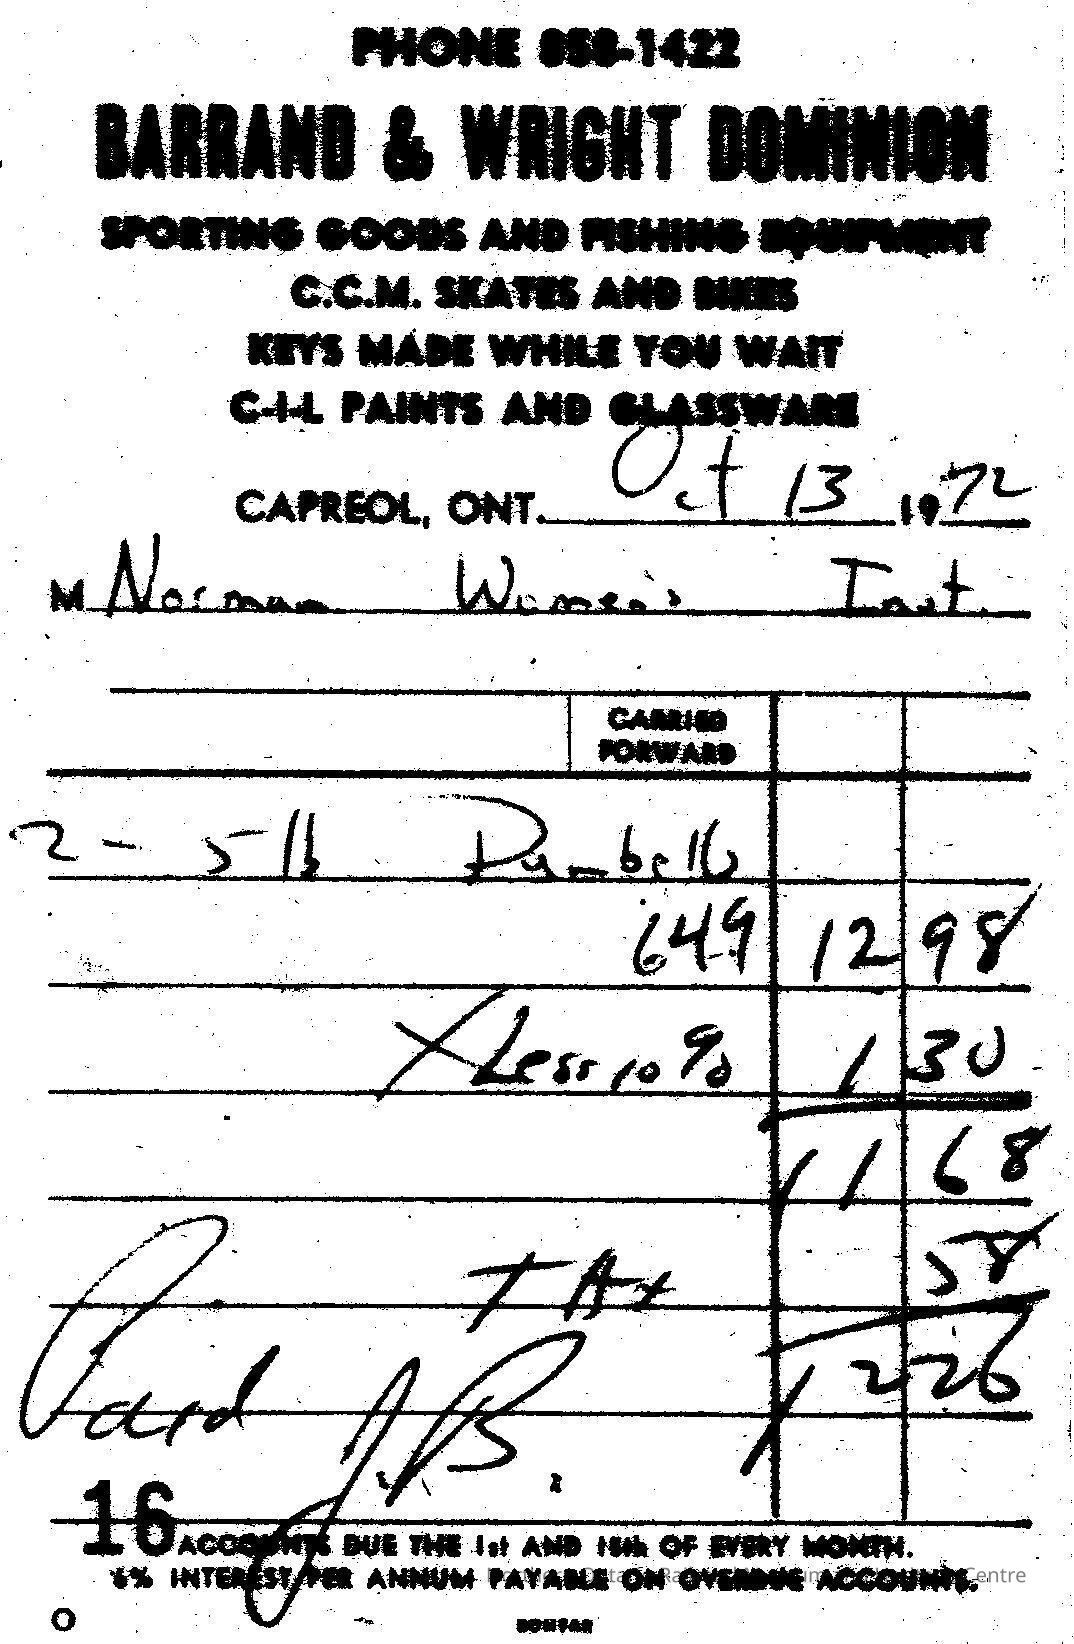 PHONE 858-1422
BARRAND & WRIGHT DOMINION
SPORTING GOODS AND FISHING EQUIPMENT
C.C.M. SKATES AND BIKES
KEYS MADE WHILE YOU WAIT
C-I-L PAINTS AND GLASSWARE
CAPREOL, ONT. Oct 13 1972
M Norman Women's Inst.
CARRIED
FORWARD
2 - 5 lb Dumbells
649 12 98
Less 10 % 1 30
11 68
TAx 58
12 26
Paid J.B.
16 ACCOUNTS DUE THE 1st AND 15th OF EVERY MONTH.
6% INTEREST PER ANNUM PAYABLE ON OVERDUE ACCOUNTS.
Centre
BONTAR